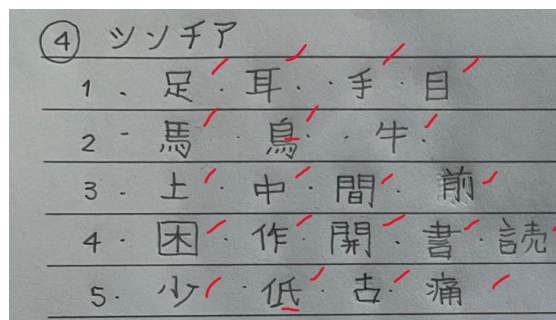 ④ シンチア
1. 足 · 耳 · · 手 · 目
2 - 馬 · 鳥 · · 牛 ·
3 · 上 · 中 · 間 · 前
4 · 困 · 作 · 開 · 書 · 読
5 · 少 · 低 · 古 · 痛